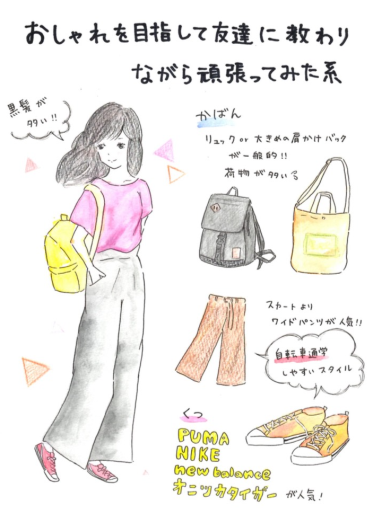 おしゃれを目指して友達に教わり
ながら頑張ってみた系
黒髪が
多い!!
かばん
リュック or 大きめの肩かけバック
が一般的!!
荷物が多い
スカートより
ワイドパンツが人気!!
自転車通学
しやすいスタイル
くつ
PUMA
NIKE
new balance
オニツカタイガー が人気!